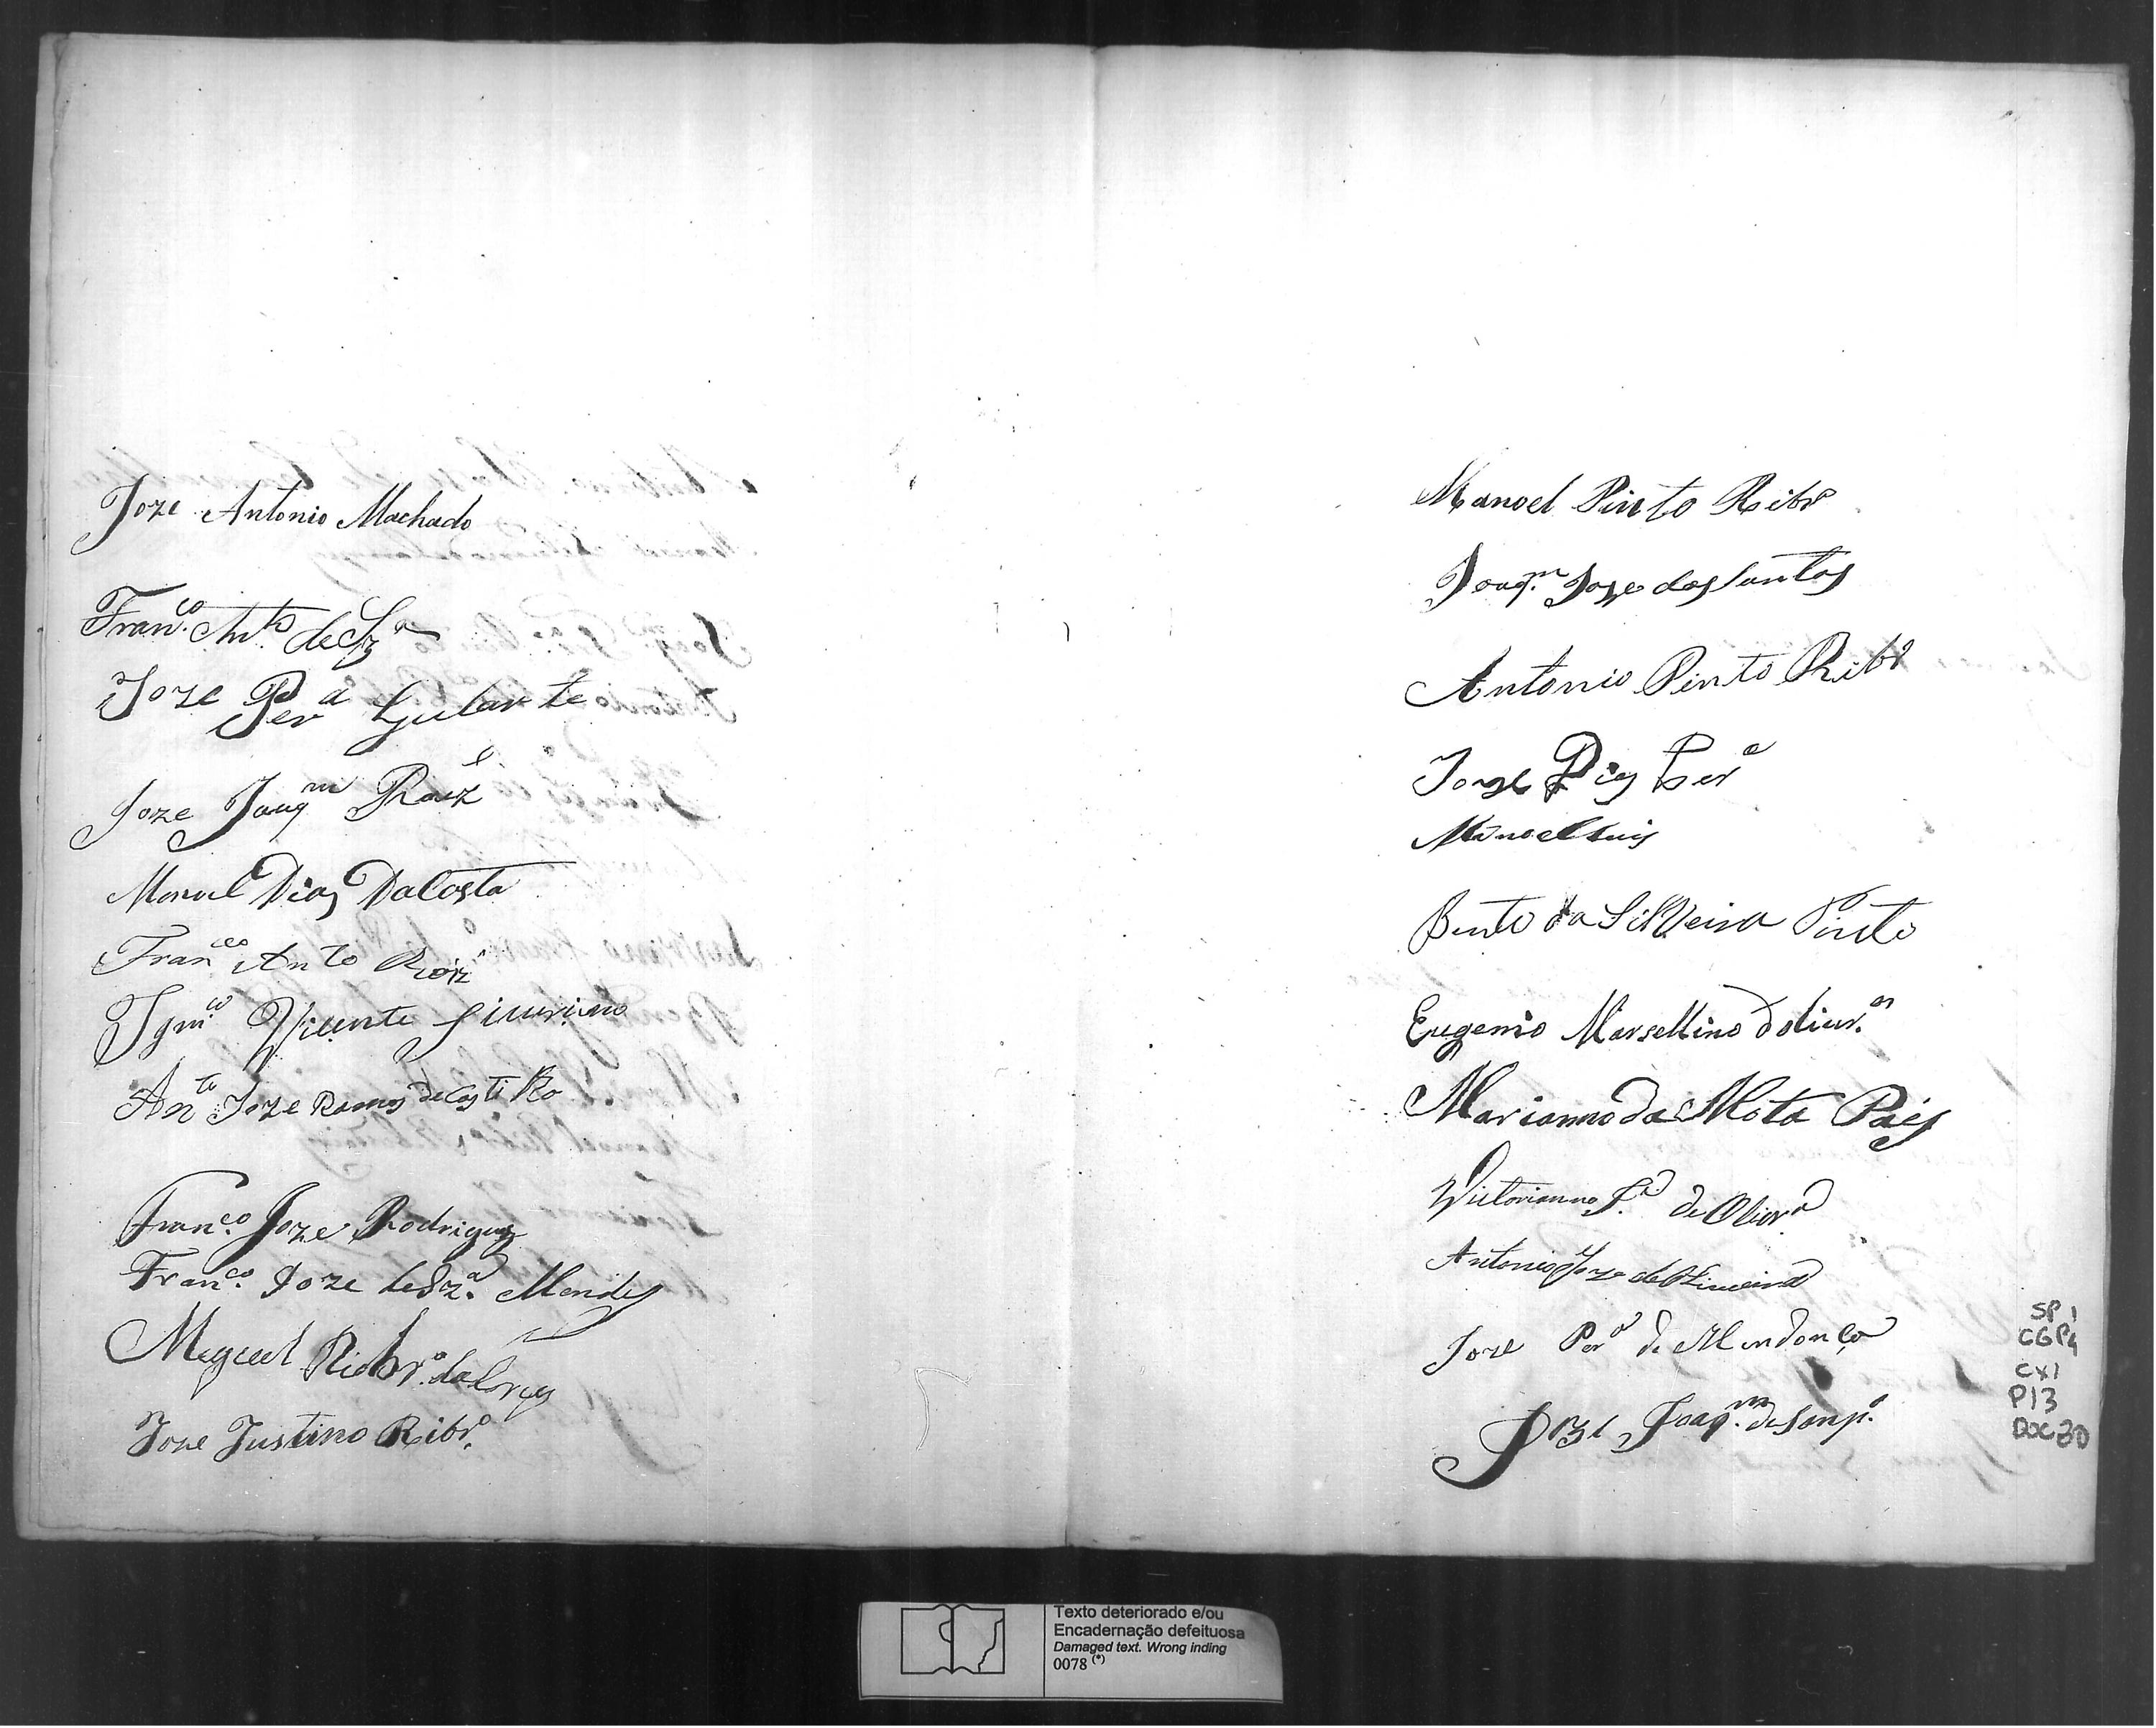 Joze Antonio Machado
Fran.co Anto. de Sza
Joze Pera Gularte
Joze Joaqm Roiz
Manoel Dias Da Costa
Franco Anto Roiz
Vicente
Anto Joze Ramos de Castro
Fran.co Joze Rodrigues
Fran.co Joze de Sza. Mendes
Meguel Riebro. da
Joze Justino Ribro.
Manoel Pinto Ribro
Joaqm. Joze dos Santos
Antonio Pinto Ribro
Joze Dias Pera
Manoel Luis
Bento da Silveira Pinto
Eugenio Marsellino
Marianno da Mota Pais
Victorianno de Olivra
Antonio Joze de
Joze Pera de Mendonça
Joze Joaqm. de
SP1
CGP4
CX1
P13
DOC30
Texto deteriorado e/ou
Encadernação defeituosa
Damaged text. Wrong inding
0078 (*)